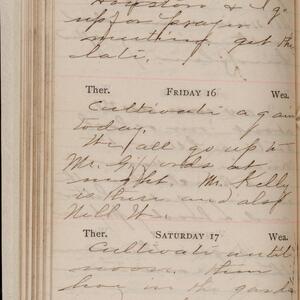 & I go
up for prayer
meeting get there
late.
Ther. FRIDAY 16 Wea.
Cultivate again
today.
We all go up to
Mr. Giffords at
night. Mr. Kelly
is there and also
Nell H.
Ther. SATURDAY 17 Wea.
Cultivate until
noon. then
hoe in the garden